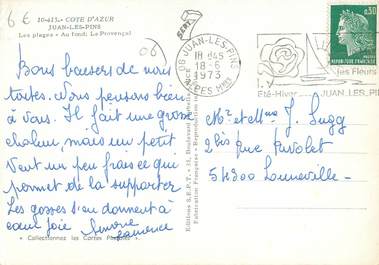 6 €
10-415. - COTE D'AZUR
JUAN-LES-PINS
Les plages - Au fond: Le Provençal
06
Bons baisers de nous
toutes. Nous pensons bien
à vous. Il fait une grosse
chaleur mais un petit
vent un peu frais ce qui
permet de la supporter
Les gosses s'en donnent à
cœur joie Simone
Laurence
« Collectionnez les Cartes Postales »
Editions S.E.P.T. - 11, Boulevard
Fabrication Française - Reproduction
06 JUAN-LES-PINS
18 H45
18-6
1973
ALPES MMES
0,30
les Fleurs
Eté-Hiver JUAN.LES.PINS
Mr et Mme J. Lugg
2 bis Rue Rivolet
54300 Luneville